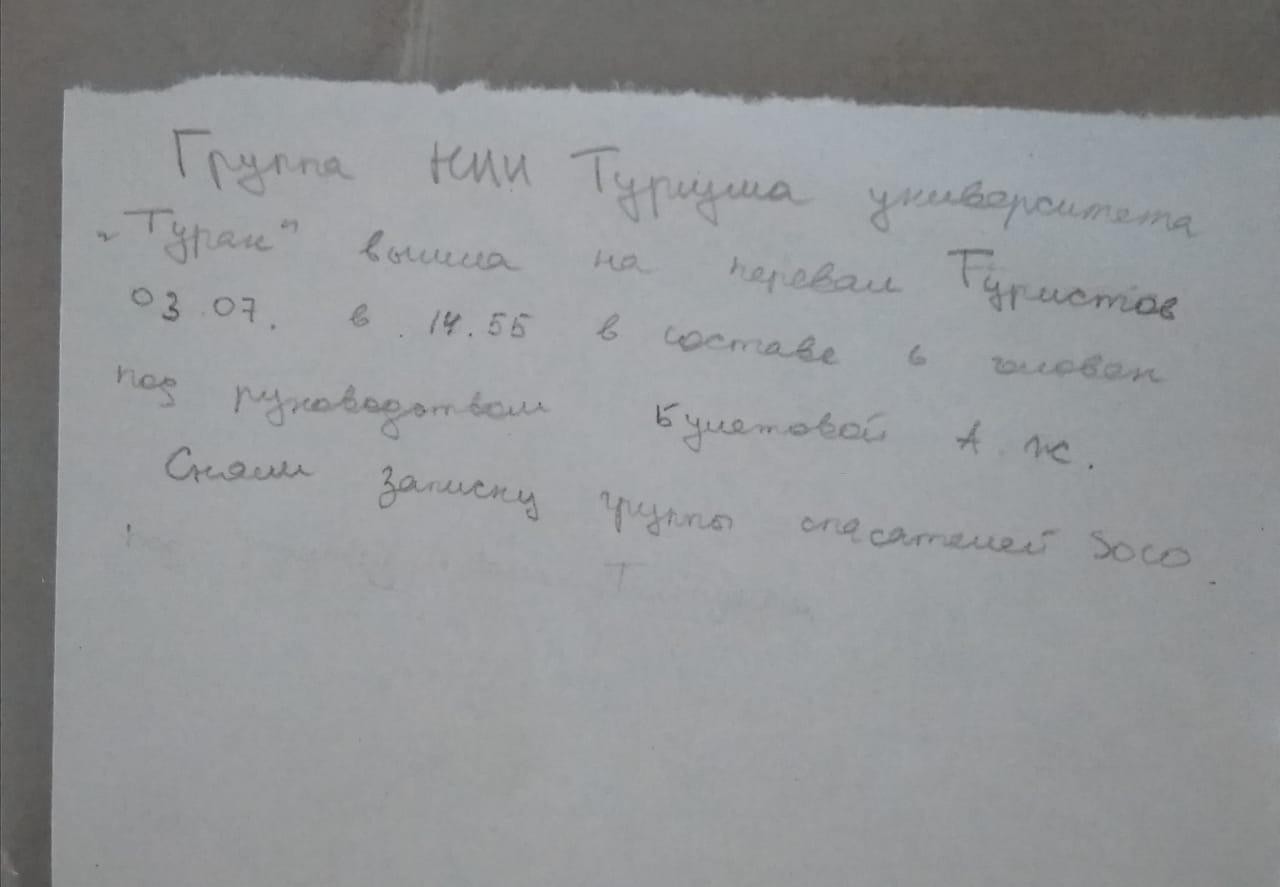 Группа НИИ Туризма университета
"Туран" вышла на перевал Туристов
03.07. в 14.55 в составе 6 человек
под руководством Булетовой А. Ж.
Сняли записку группы спасателей Soco.